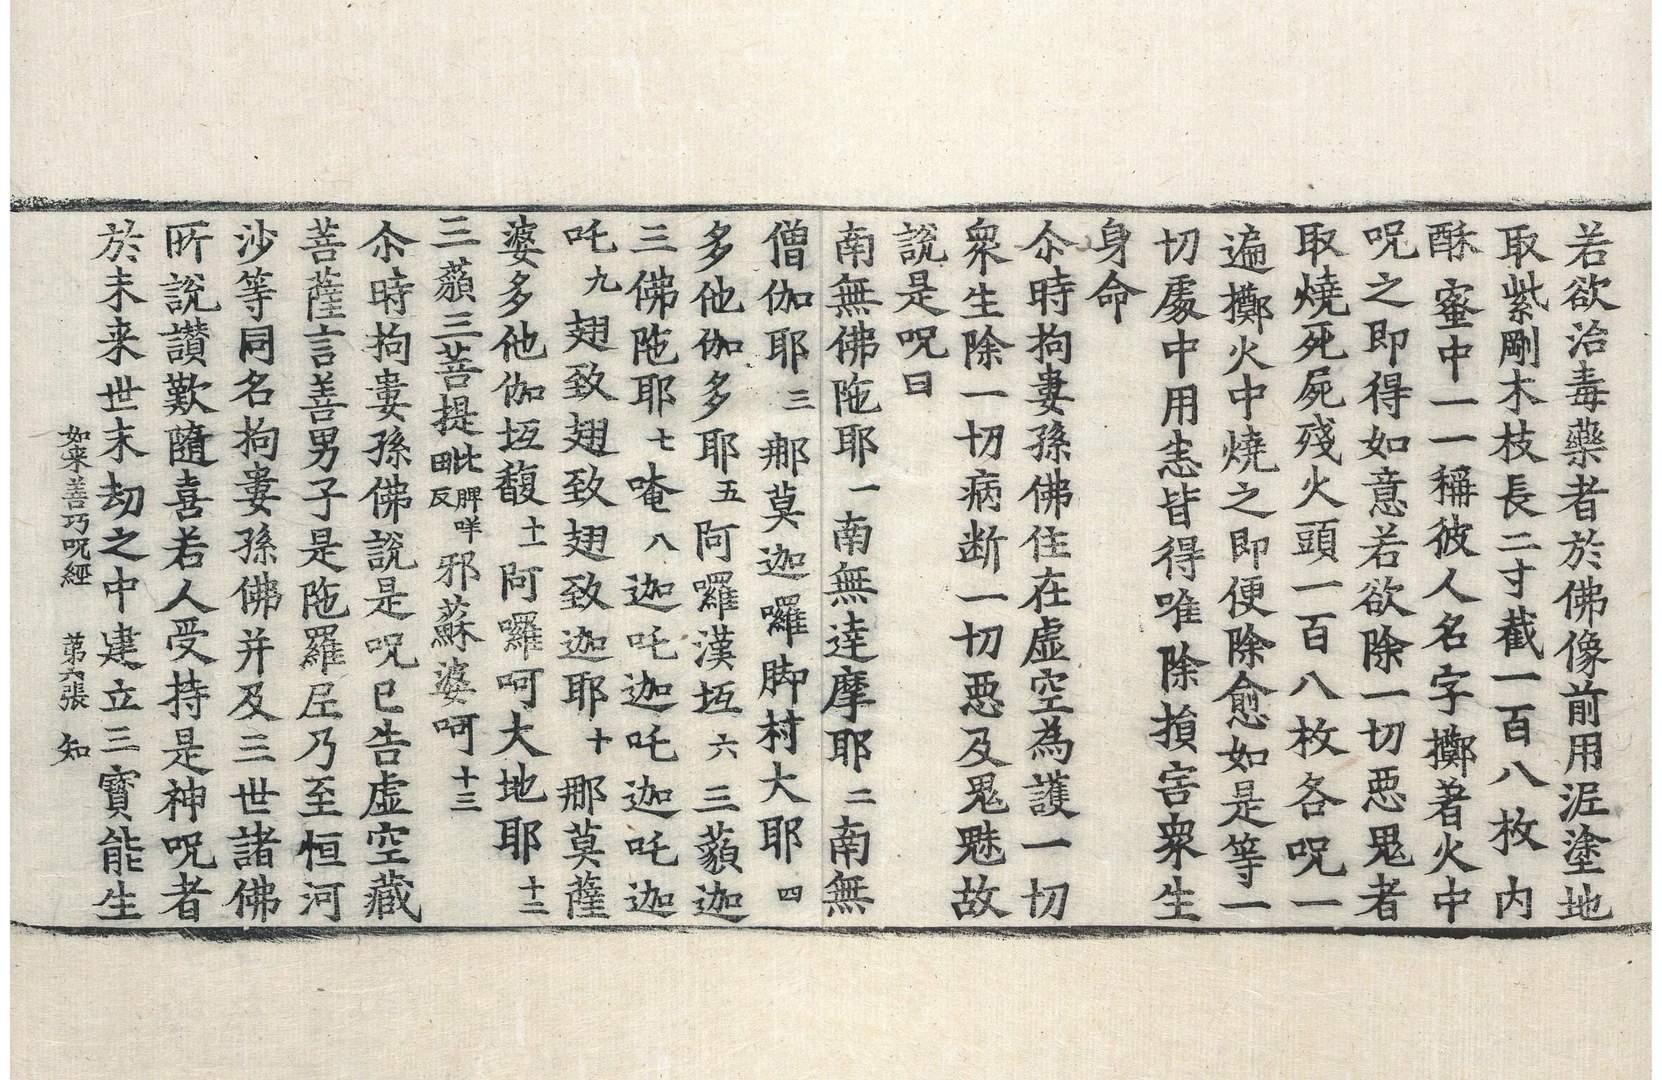 若欲治毒藥者於佛像前用泥塗地
取紫剛木枝長二寸截一百八枚内
酥蜜中一一稱彼人名字擲著火中
呪之即得如意若欲除一切惡鬼者
取燒死屍殘火頭一百八枚各呪一
遍擲火中燒之即便除愈如是等一
切處中用恚皆得唯除損害衆生
身命
尒時拘婁孫佛住在虛空為護一切
衆生除一切病断一切惡及鬼魅故
說是呪曰
南無佛陁耶一南無達摩耶二南無
僧伽耶三 那莫迦囉脚村大耶四
多他伽多耶五阿囉漢坘六三藐迦
三佛陁耶七唵八迦吒迦吒迦吒迦
吒九翅致翅致翅致迦耶十那莫薩
婆多他伽坘馥十一阿囉呵大地耶十二
三藐三菩提毗田反脾咩邪蘇婆呵十三
尒時拘婁孫佛說是呪已告虛空藏
菩薩言善男子是陁羅尼乃至恒河
沙等同名拘婁孫佛并及三世諸佛
所說讃歎隨喜若人受持是神呪者
於未来世末劫之中建立三寶能生
如来善巧呪經 第六張 知